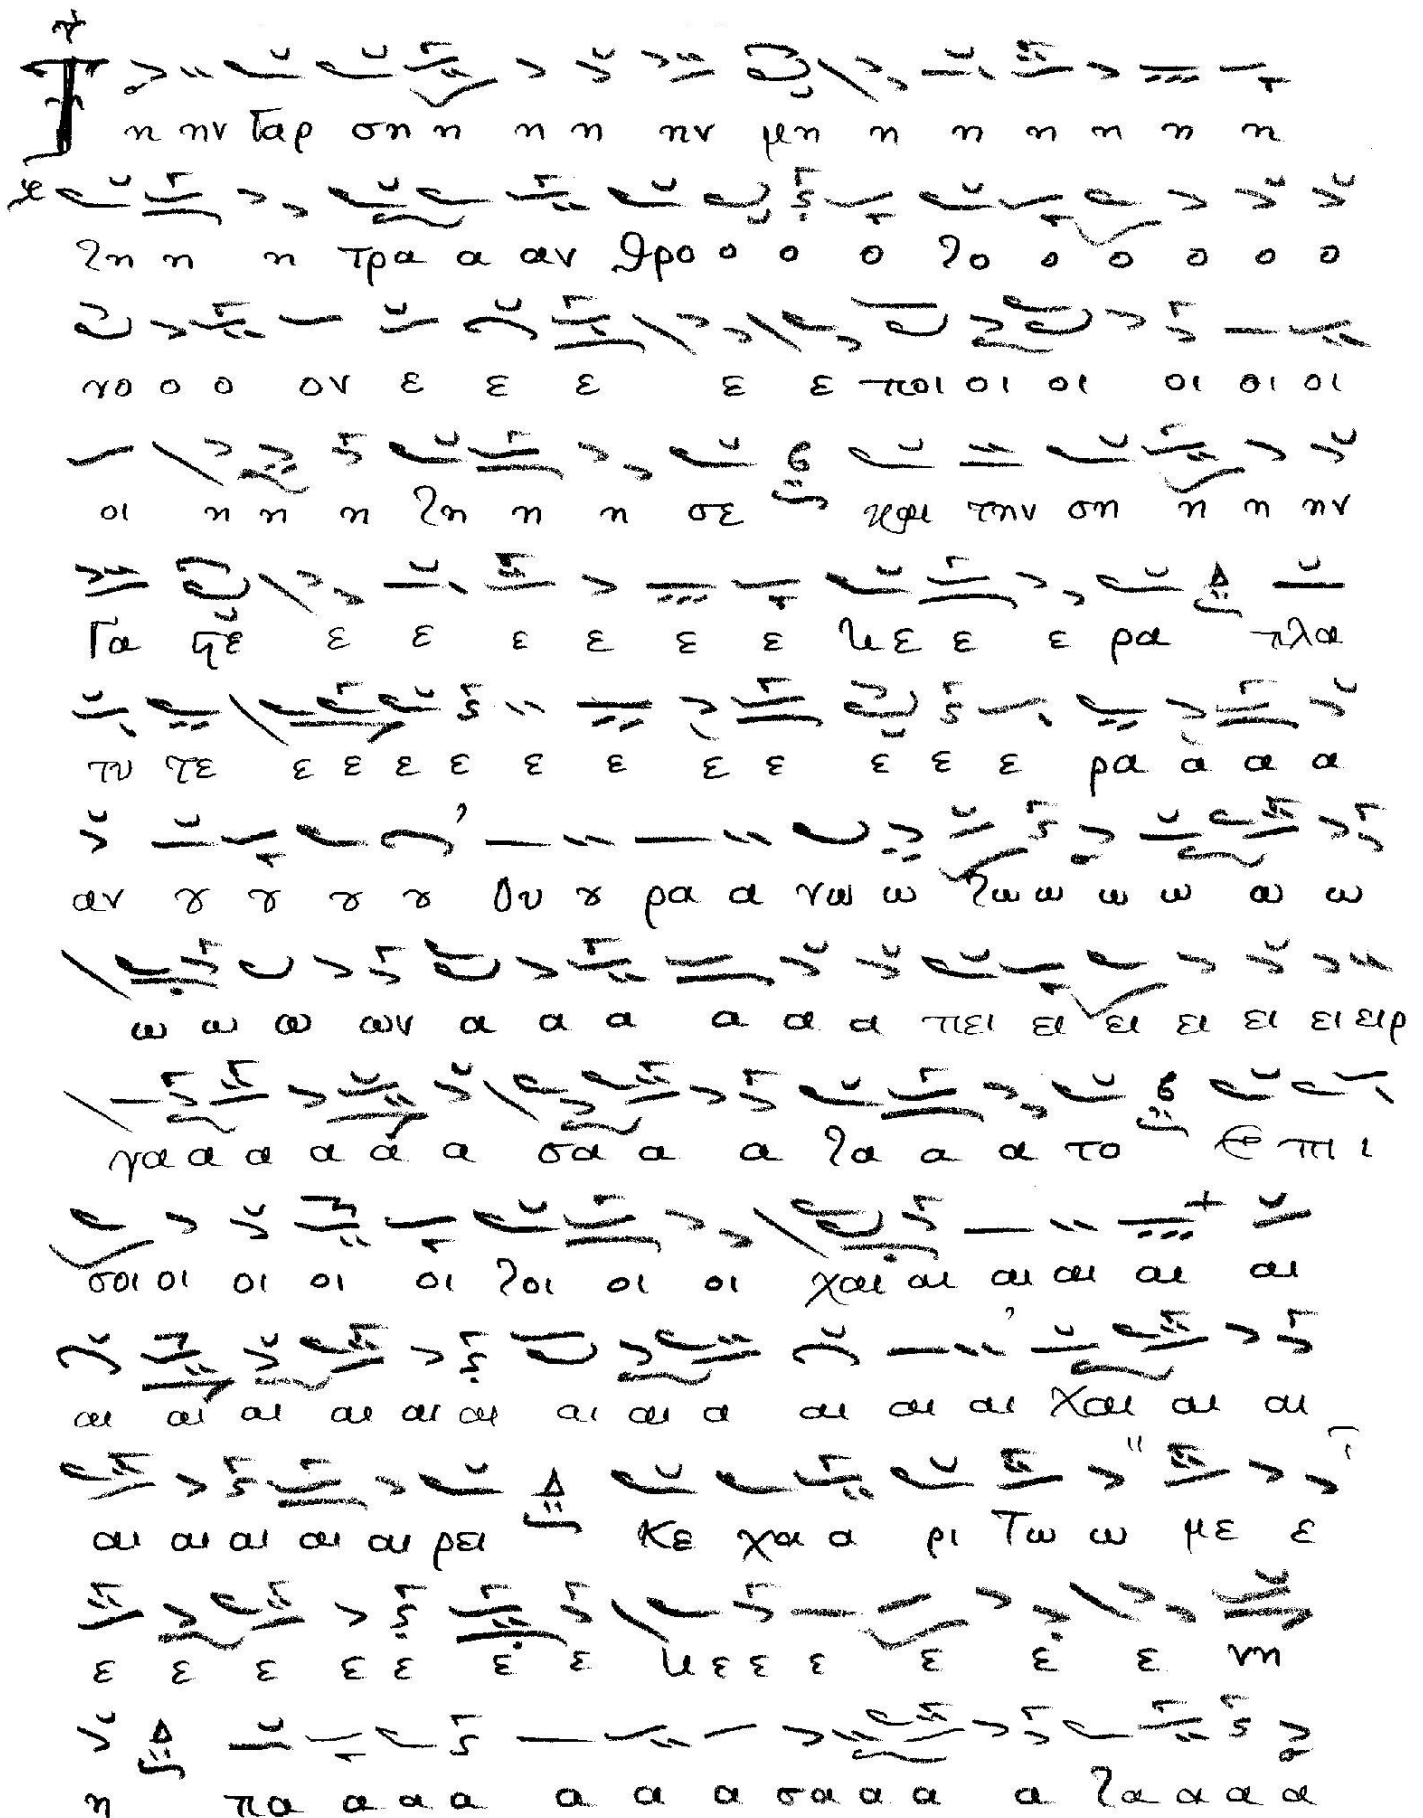 Τ η ην γαρ ση η η η ην μη η η η η η η
χη η η τρα α αν θρο ο ο ο χο ο ο ο ο ο
νο ο ο ον ε ε ε ε ε ποι οι οι οι οι οι
οι η η η χη η η σε και την ση η η ην
γα ϛε ε ε ε ε ε ε χε ε ε ρα πλα
τυ τε ε ε ε ε ε ε ε ε ε ε ε ρα α α α
αν ȣ ȣ ȣ ȣ ȣυ ȣ ρα α νω ω χω ω ω ω ω ω
ω ω ω ων α α α α α α πει ει ει ει ει ει ειρ
γα α α α α α σα α α χα α α το Ε πι ι
σοι οι οι οι οι χοι οι οι χαι αι αι αι αι αι
αι αι αι αι αι αι αι αι α αι αι αι χαι αι αι
αι αι αι αι αι ρει Κε χα α ρι τω ω με ε
ε ε ε ε ε ε ε χε ε ε ε ε ε ε νη
η πα α α α α α α σα α α α χα α α α